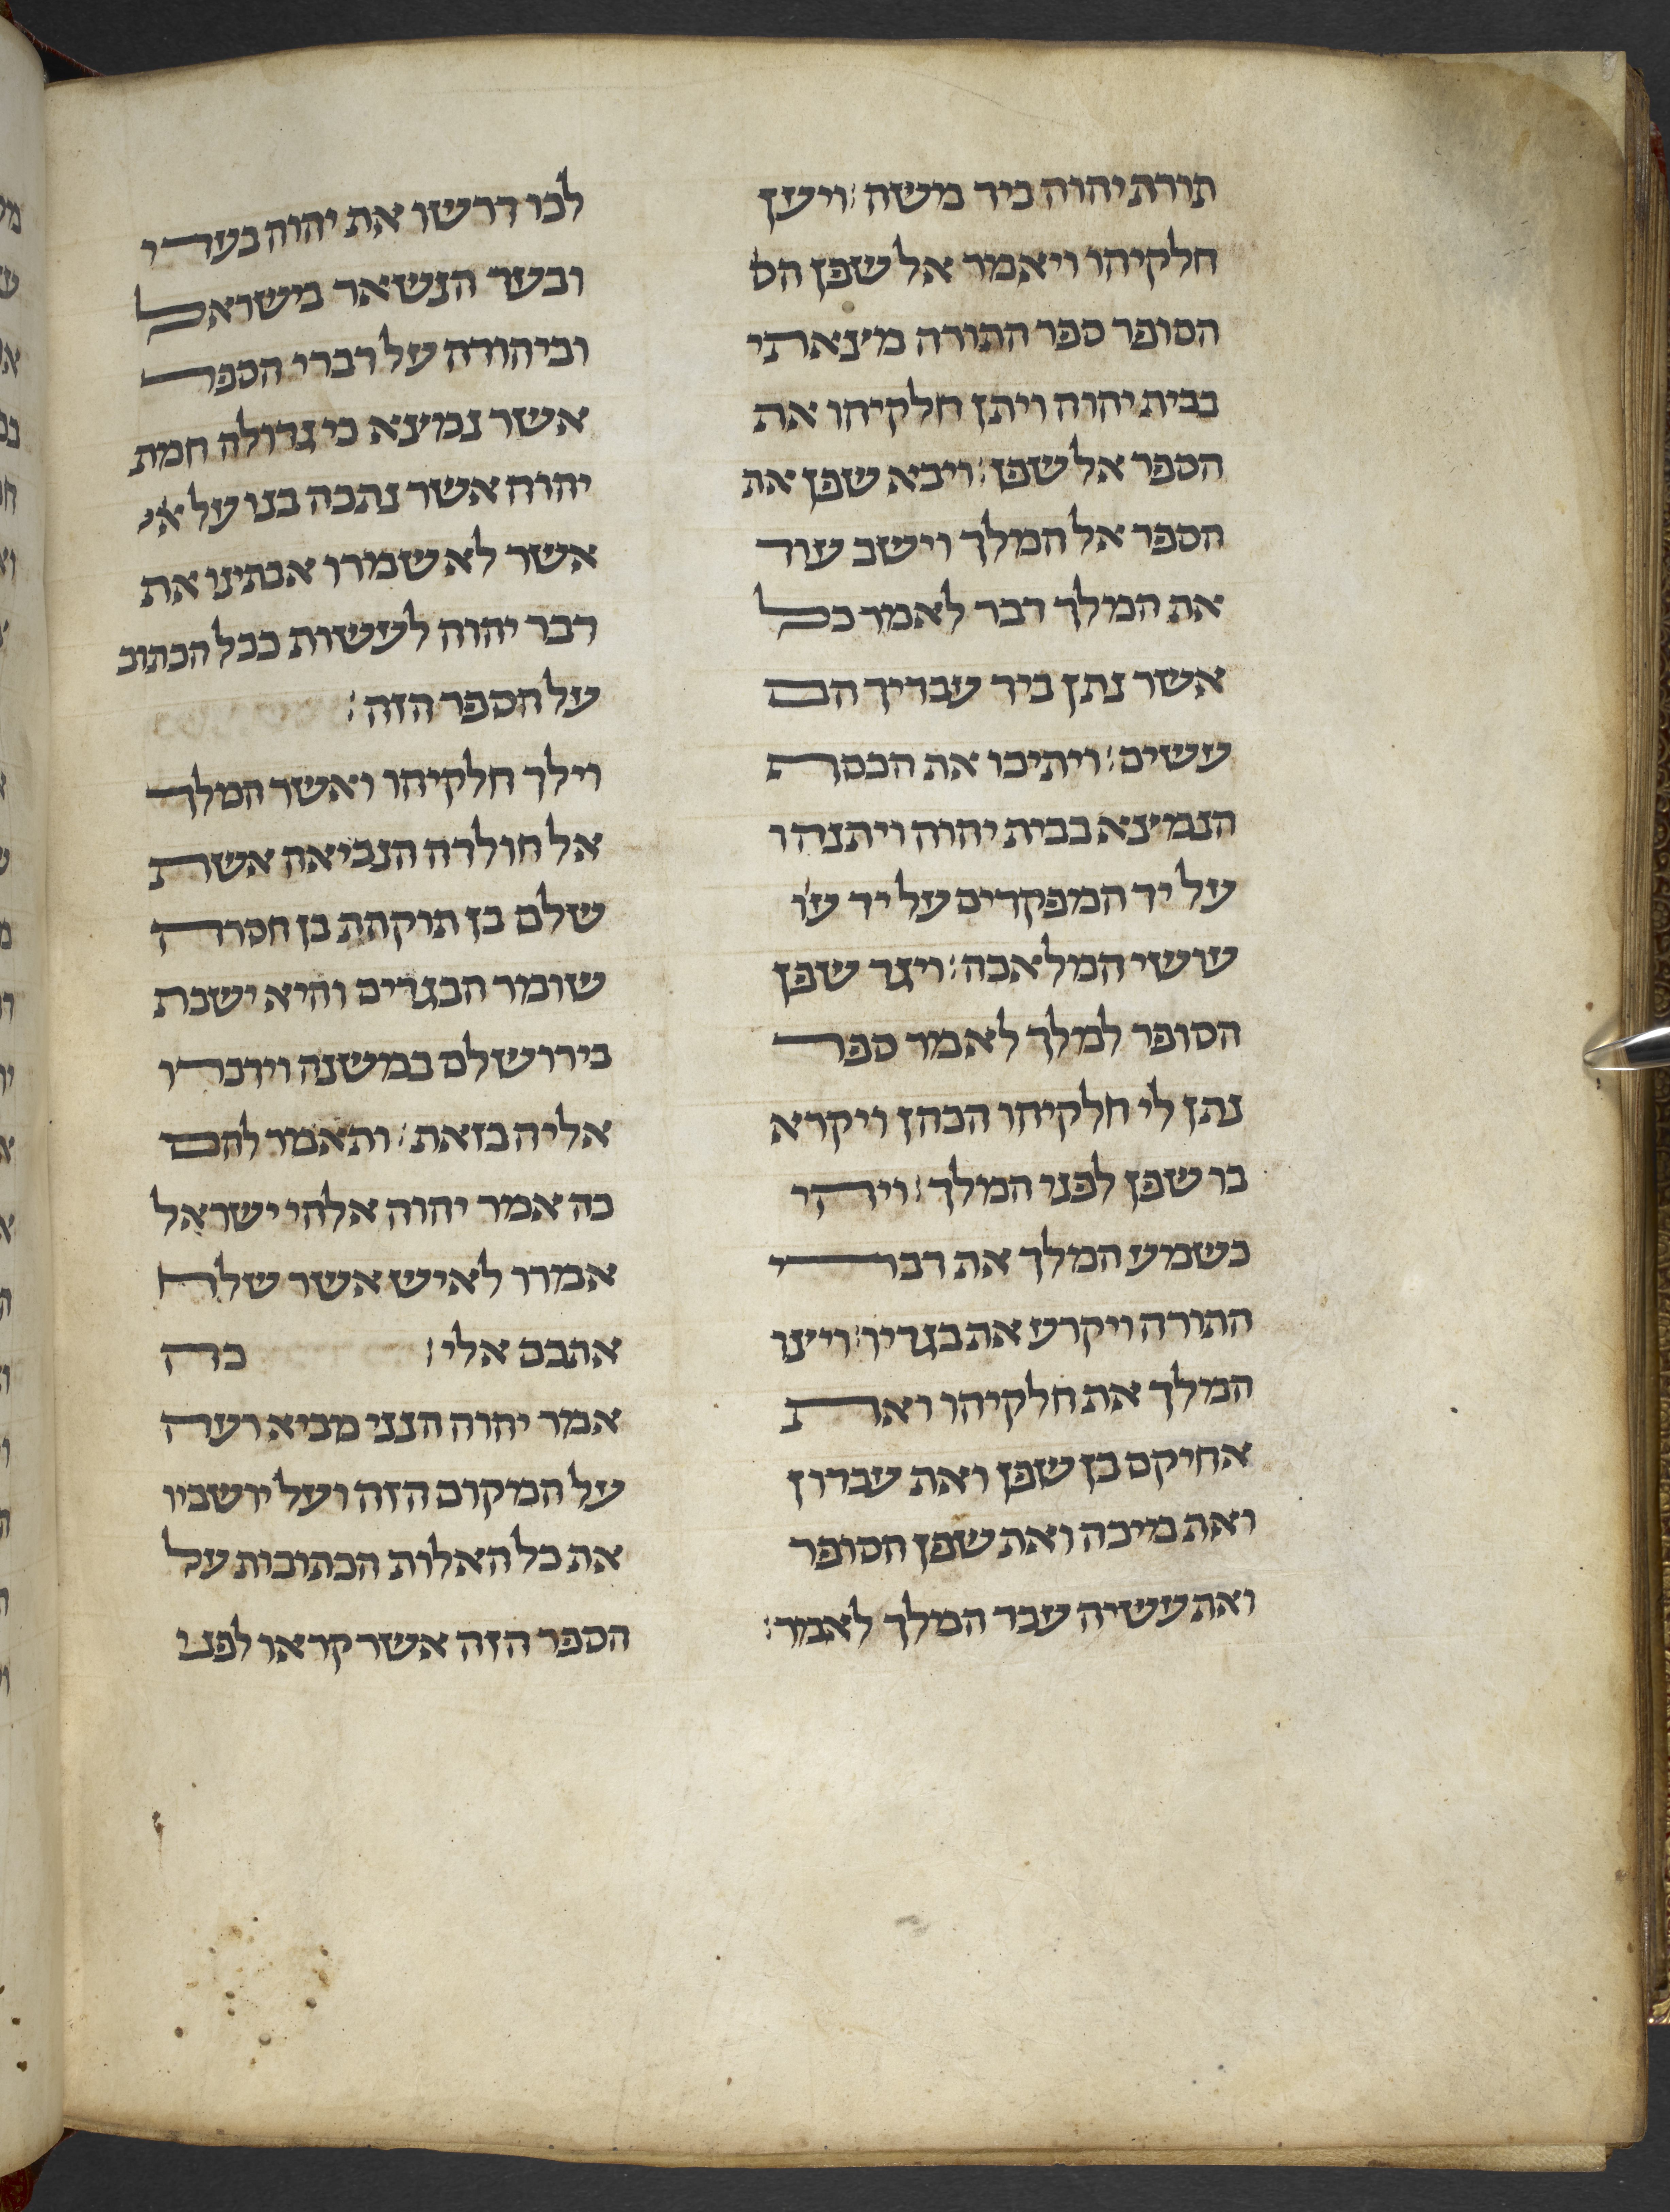 תורת יהוה ביד משה׃ ויען
חלקיהו ויאמר אל שפן הס
הסופר ספר התורה מצאתי
בבית יהוה ויתן חלקיהו את
הספר אל שפן׃ ויבא שפן את
הספר אל המלך וישב עוד
את המלך דבר לאמר כל
אשר נתן ביד עבדיך הם
עשים׃ ויתיכו את הכסף
הנמצא בבית יהוה ויתנהו
על יד המפקדים על יד עו
עושי המלאכה׃ ויגד שפן
הסופר למלך לאמר ספר
נתן לי חלקיהו הכהן ויקרא
בו שפן לפני המלך׃ ויהי
כשמע המלך את דברי
התורה ויקרע את בגדיו׃ ויצו
המלך את חלקיהו ואת
אחיקם בן שפן ואת עבדון
ואת מיכה ואת שפן הסופר
ואת עשיה עבד המלך לאמר׃
לכו דרשו את יהוה בעדי
ובעד הנשאר מישראל
וביהודה על דברי הספר
אשר נמצא כי גדולה חמת
יהוה אשר נתכה בנו על א
אשר לא שמרו אבתינו את
דבר יהוה לעשות ככל הכתוב
על הספר הזה׃
וילך חלקיהו ואשר המלך
אל חולדה הנביאה אשת
שלם בן תוקהת בן חסרה
שומר הבגדים והיא ישבת
בירושלם במשנה וידברו
אליה כזאת׃ ותאמר להם
כה אמר יהוה אלהי ישראל
אמרו לאיש אשר שלח
אתכם אלי׃ כה
אמר יהוה הנני מביא רעה
על המקום הזה ועל יושביו
את כל האלות הכתובות על
הספר הזה אשר קראו לפני